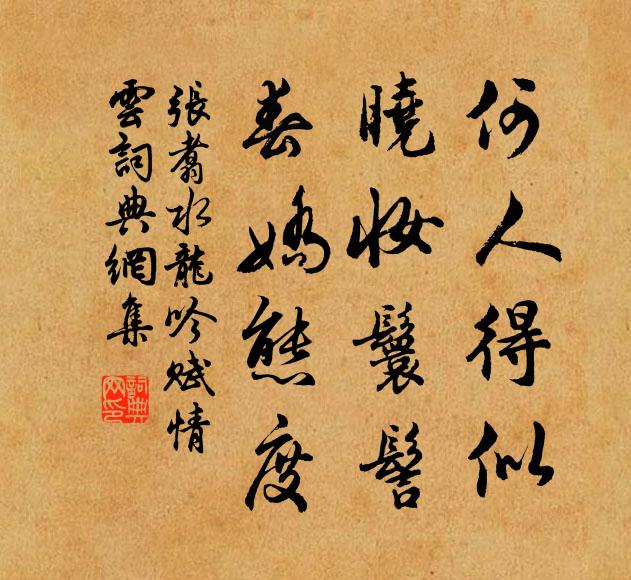 何人得似
曉妝鬟髻
春嬌態度
張翥水龍吟賦情
雲詞典網集
詞典网印